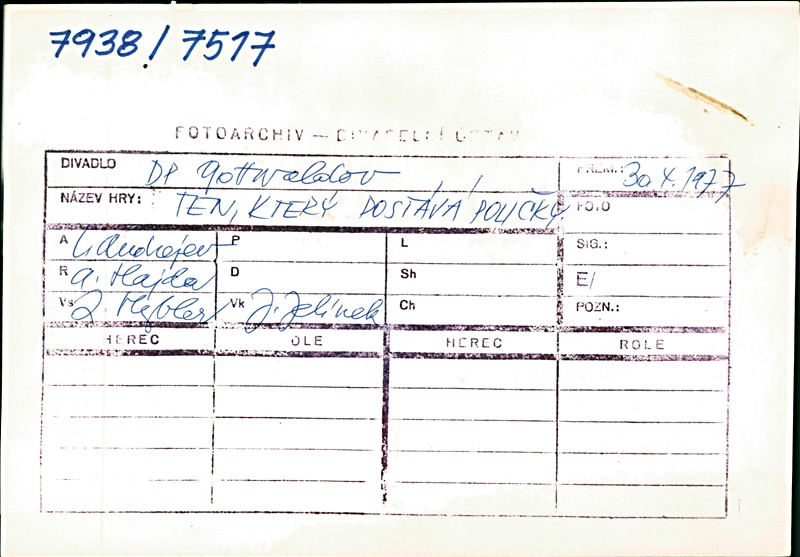 7938/7517
FOTOARCHIV – DIVADELNÍ ÚSTAV
DIVADLO DP Gottwaldov PREM.: 30.4.1977
NÁZEV HRY: TEN, KTERÝ DOSTÁVÁ POLIČKY FOTO
A L. Andrejev P L SIG.:
R A. Hajda D Sh E/
Vs Z. Hybler Vk J. Jelínek Ch POZN.:
HEREC ROLE HEREC ROLE